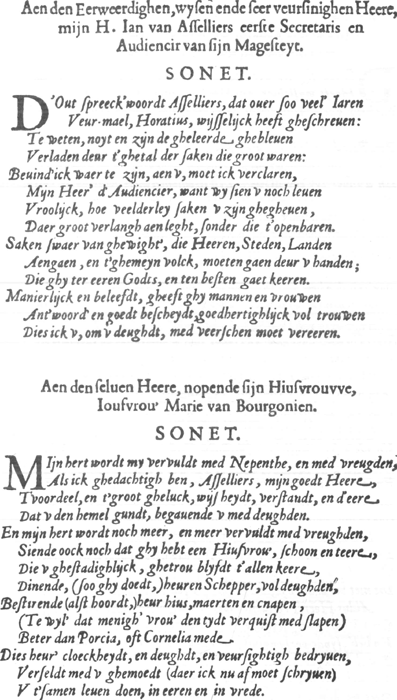 Aen den Eerweerdighen, wysen ende seer veursinighen Heere,
mijn H. Ian van Asselliers eerste Secretaris en
Audiencir van sijn Magesteyt.
SONET.
D'Out spreeck'woordt Asselliers, dat ouer soo veel' Iaren
Veur-mael, Horatius, wijsselijck heeft gheschreuen:
Te weten, noyt en zijn de gheleerde ghebleuen
Verladen deur t'ghetal der saken die groot waren:
Beuind'ick waer te zijn, aen v, moet ick verclaren,
Mijn Heer' d'Audiencier, want wy sien v noch leuen
Vroolijck, hoe veelderley saken v zijn ghegheuen,
Daer groot verlangh aen leght, sonder die t'openbaren.
Saken swaer van ghewight', die Heeren, Steden, Landen
Aengaen, en t'ghemeyn volck, moeten gaen deur v handen;
Die ghy ter eeren Godts, en ten besten gaet keeren.
Manierlijck en beleefdt, gheeft ghy mannen en vrouwen
Antwoord' en goedt bescheydt, goedhertighlijck vol trouwen
Dies ick v, om v deughdt, med veerschen moet vereeren.
Aen den seluen Heere, nopende sijn Hiusvrouvve,
Ioufvrou' Marie van Bourgonien.
SONET.
MIjn hert wordt my vervuldt med Nepenthe, en med vreugden,
Als ick ghedachtigh ben, Asselliers, mijn goedt Heere,
Tvoordeel, en t'groot gheluck, wijsheydt, verstandt, en d'eere
Dat v den hemel gundt, begauende v med deughden.
En mijn hert wordt noch meer, en meer vervuldt med vreughden,
Siende oock noch dat ghy hebt een Hiusvrou', schoon en teere,
Die v ghestadighlijck, ghetrou blyfdt t'allen keere,
Dinende, (soo ghy doedt,) heuren Schepper, vol deughden,
Bestirende (alst hoordt,) heur hius, maerten en cnapen,
(Te wyl' dat menigh' vrou' den tydt verquist med slapen)
Beter dan Porcia, oft Cornelia mede
Dies heur' cloeckheydt, en deughdt, en veursightigh bedryuen,
Verseldt med v ghemoedt (daer ick nu af moet schryuen)
V t'samen leuen doen, in eeren en in vrede.